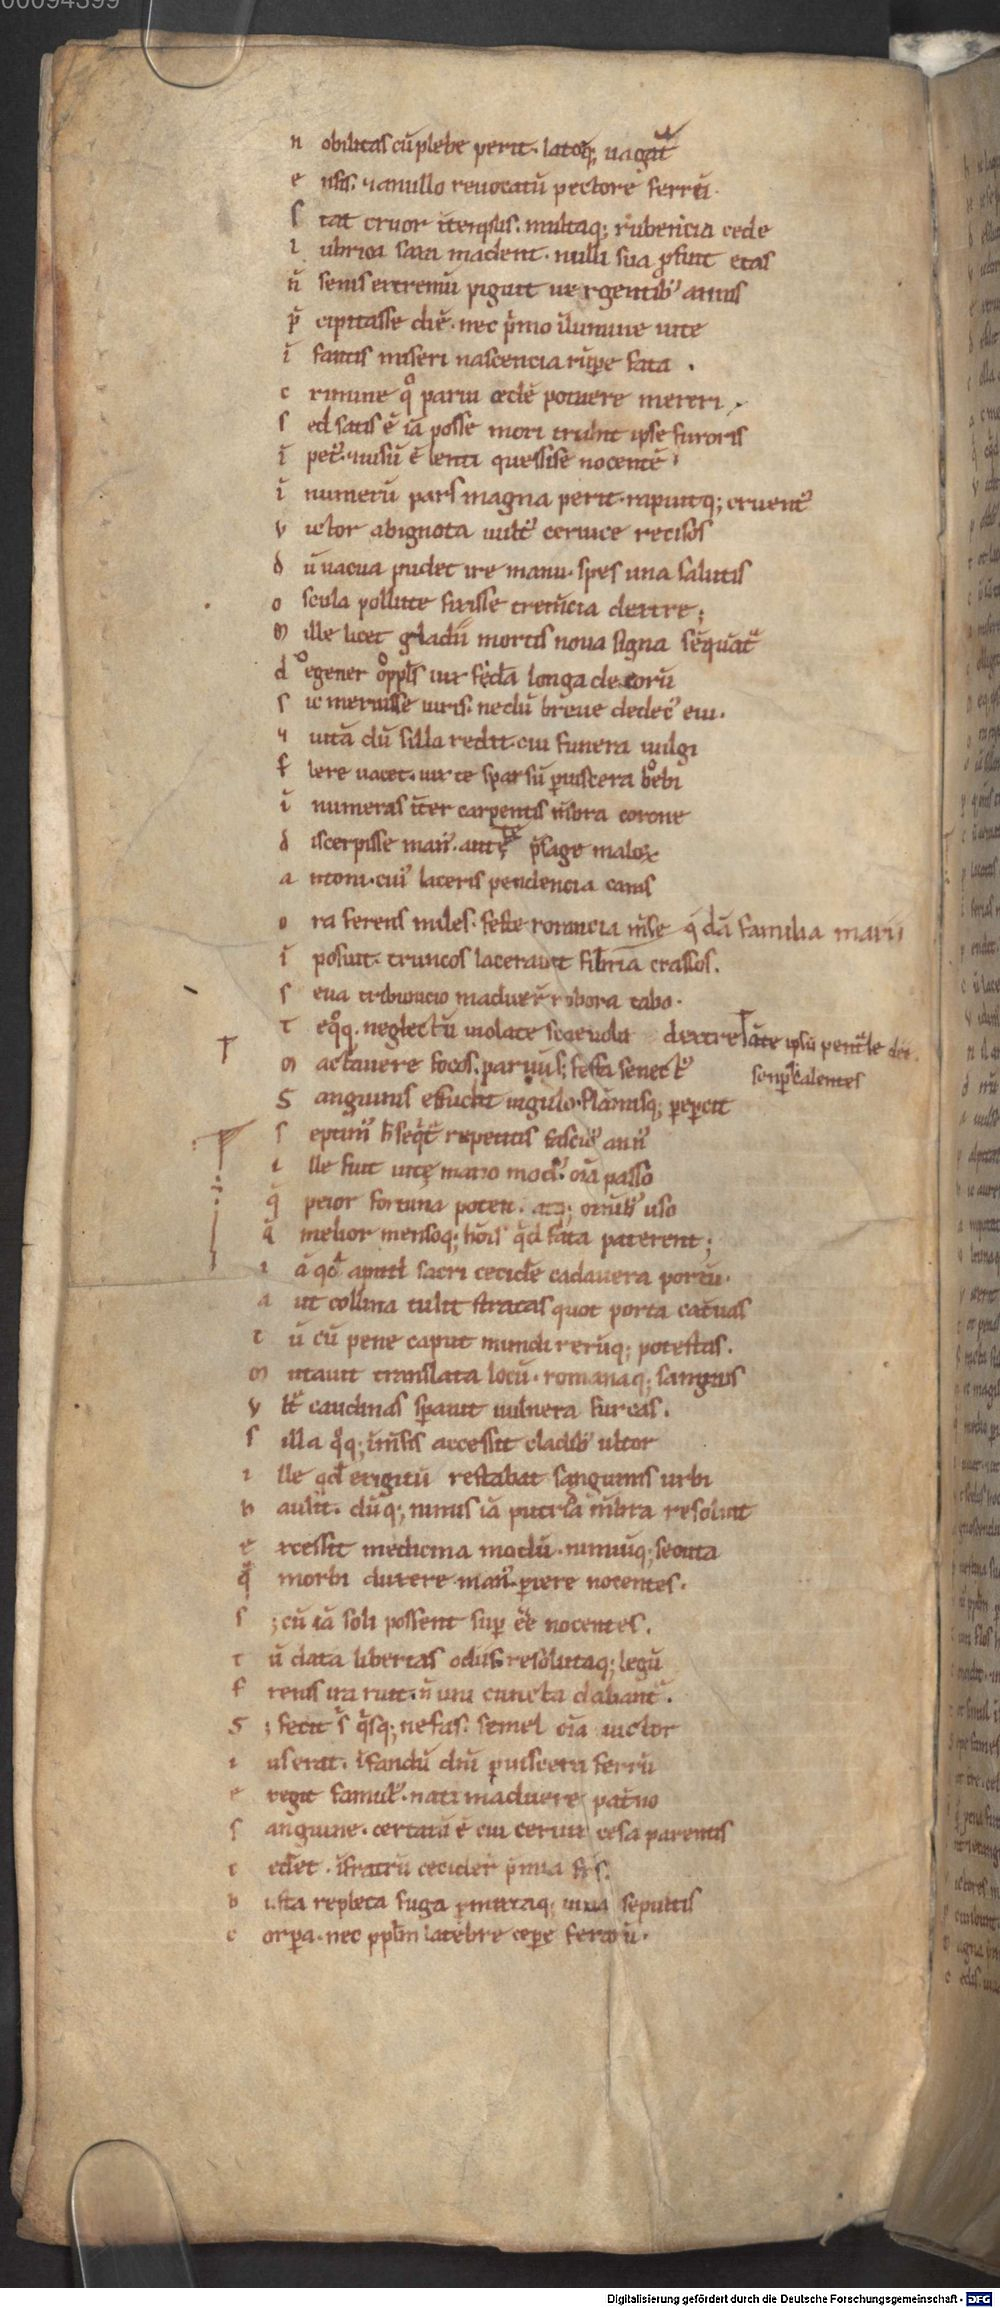 n obilitas cū plebe perit. latoq; uagat᷑
e nsis. ⁊ a nullo reuocatū pectore ferrū.
s tat cruor ī templis. multaq; rubencia cede
l ubrica saxa madent. nulli sua ꝓfuit etas
ñ senis extremū piguit uergentib⁹ annis
p̄ cipitasse diē. nec p̄mo ī lumine uite
ī fantis miseri nascencia rūpe fata .
c rimine qͦ parui cedē potuere mereri
s ed satis ē iā posse mori trahit ipse furoris
ī pet⁹. ⁊ uisū ē lenti quesisse nocentē
ī numerū pars magna perit. rapuitq; cruent⁹
v ictor ab ignota uult⁹ ceruice recisos
d ū uacua pudet ire manu. spes una salutis
o scula pollute fixisse tremēcia dextre;
m ille licet gladii mortis noua signa seq̄uat᷑
d egener o ppl̄s uix secl̄a longa decorū
s ic meruisse uiris. nedū breue dedec⁹ eui.
⁊ uitā dū silla redit. cui funera uulgi
f lere uacet. uix te sparsū ꝑ uiscera bebi
ī numeras īter carpentis mēbra corone
d iscerpisse man⁹. aut te p̄sage maloꝝ
a ntoni. cui⁹ laceris pendencia canis
o ra ferens miles. feste rorancia mēse q̄dā familia marii
ī posuit. truncos lacerauit fibria crassos.
s eua tribunicio maduert robora tabo.
t eqͦq. neglectū uiolate sceuola dextre āte ipsū penit᷑le dee
semp̄ calentes
m actauere focos. paruū s; fessa senect⁹
s anguinis effudit iugulo. flāmisq; pepercit
s eptim⁹ h̄ seqt᷑ repetitis fascib⁹ ann⁹
i lle fuit uite mario mod⁹. oīa passo
q̄ peior fortuna potest. atq; omib⁹ uso
q̄ melior mensoq; hoīs q̄d fata paterent;
i ā qd̄ apud sacri cecidē cadauera portū.
a ut collina tulit stratas quot porta cat̄uas
t ū cū pene caput mundi rerūq; potestas.
m utauit translata locū. romanaq; sangnis
v lt̄ caudinas sꝑauit uulnera furcas.
s illa qͦq; īmēsis accessit cladib⁹ ultor
i lle qd̄ exigūū restabat sanguinis urbi
h ausit. dūq; nimis iā putria mēbra resoluit
e xcessit medicina modū. nimiūq; secuta
q̄ morbi duxere man⁹. periere nocentes.
s ; cū iā soli possent suꝑ eē nocentes.
t ū data libertas odiis resolutaq; legū
f renis ira ruit. n̄ uni cuncta dabant᷑.
s ; fecit sͥ q̄sq; nefas. semel oīa uictor
i userat. īfandū dn̄i ꝑ uiscera ferrū
e xegit famul⁹. nati maduere pat̄no
s anguine. certatū ē cui ceruix cesa parentis
c ed̄et. ī fratrū cecider̄ p̄mia frs̄.
b usta repleta fuga ꝑmixtaq; uiua sepultis
c orpora. nec ppl̄m latebre cepe ferarū.
Digitalisierung gefördert durch die Deutsche Forschungsgemeinschaft - DFG